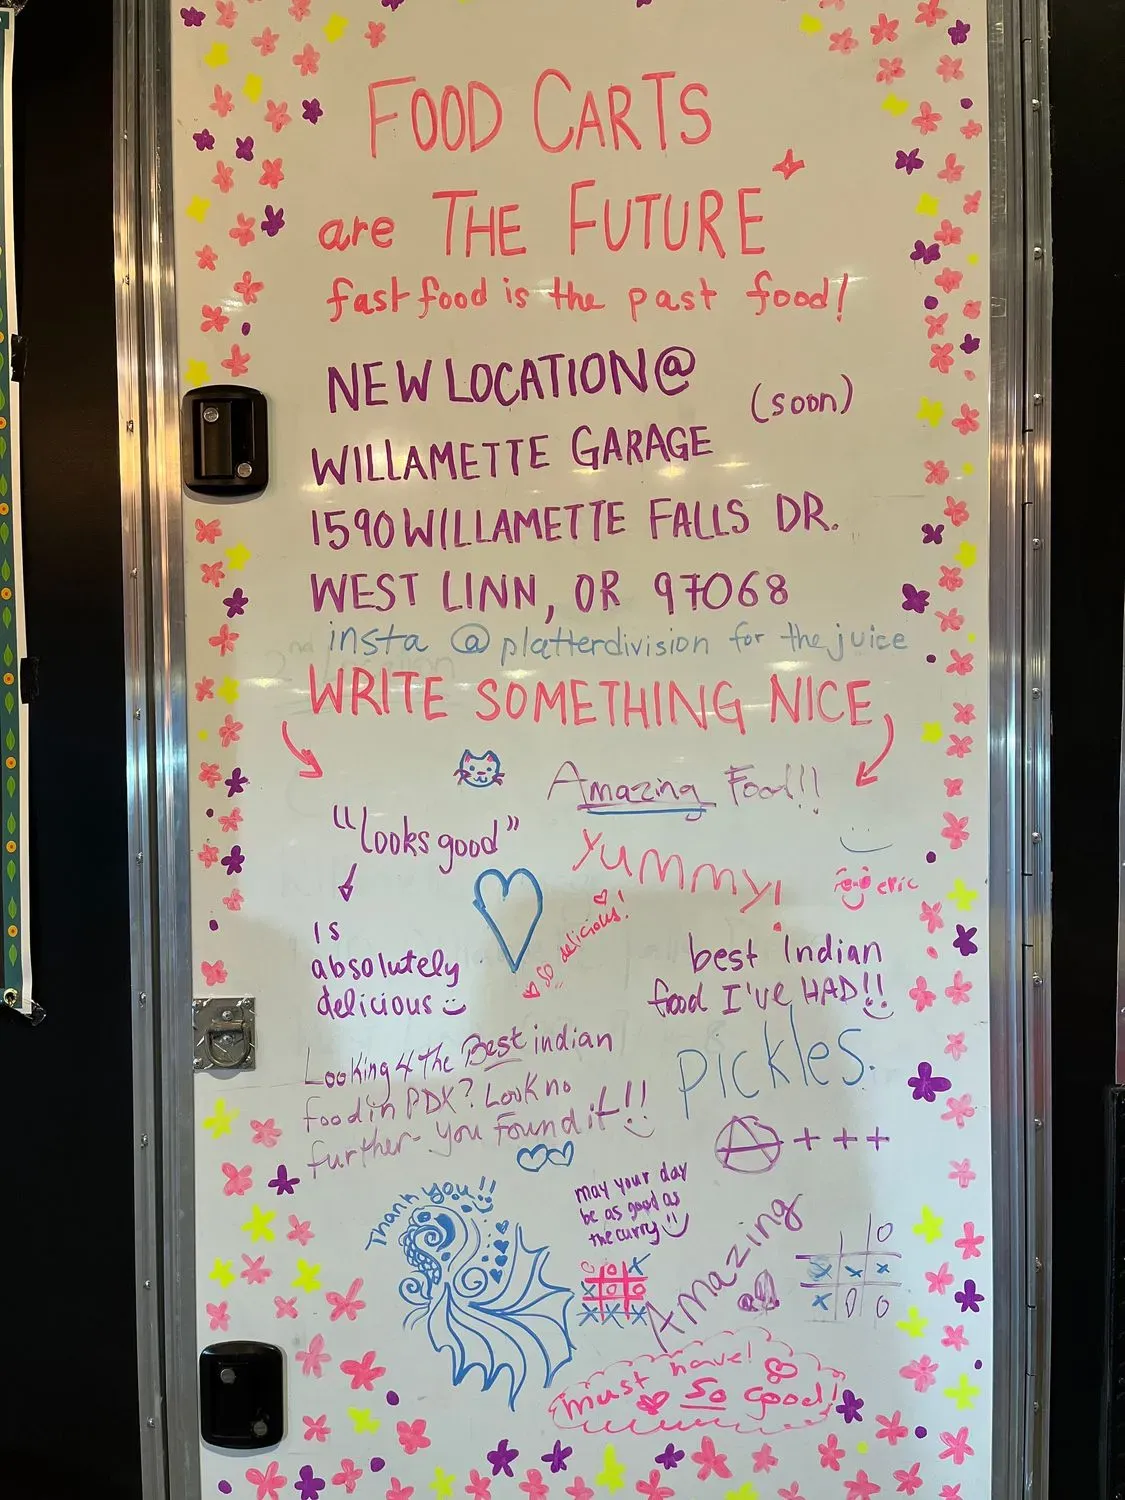 FOOD CARTS
are THE FUTURE
fast food is the past food!
NEW LOCATION@
(soon)
WILLAMETTE GARAGE
1590 WILLAMETTE FALLS DR.
WEST LINN, OR 97068
insta @platterdivision for the juice
WRITE SOMETHING NICE
Amazing Food!!
"looks good"
YUMMY!
eric
is
absolutely
delicious
so delicious!
best Indian
food I've HAD!!
Looking 4 the Best indian
food in PDX? Look no
further- You Found it!!
PICKLES.
A+++
Thank you!!
may your day
be as good as
the curry
Amazing
O O X
X O O
X X X
O
X X X
X O O
must have!
So Good!